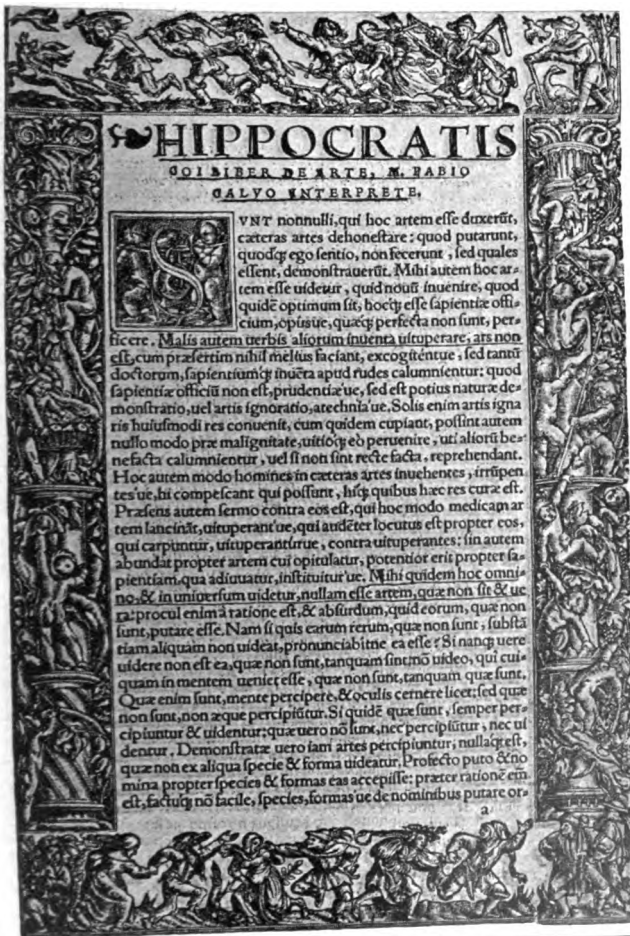 HIPPOCRATIS
COI LIBER DE ARTE, M. FABIO
CALVO INTERPRETE.
SVNT nonnulli, qui hoc artem esse duxerũt,
cæteras artes dehonestare: quod putarunt,
quodq; ego sentio, non fecerunt, sed quales
essent, demonstrauerũt. Mihi autem hoc ar-
tem esse uidetur, quid nouũ inuenire, quod
quidẽ optimum sit, hocq; esse sapientiæ offi-
cium, opusue, quæq; perfecta non sunt, per-
ficere. Malis autem uerbis aliorum inuenta uituperare, ars non
est, cum præsertim nihil melius faciant, excogitẽtue, sed tantũ
doctorum, sapientiumq; inuẽta apud rudes calumnientur: quod
sapientiæ officiũ non est, prudentiæ'ue, sed est potius naturæ de-
monstratio, uel artis ignoratio, atechnia'ue. Solis enim artis igna
ris huiusmodi res conuenit, cum quidem cupiant, possint autem
nullo modo præ malignitate, uitioq; eò peruenire, uti aliorũ be-
nefacta calumnientur, uel si non sint recte facta, reprehendant.
Hoc autem modo homines in cæteras artes inuehentes, irrũpen
tes'ue, hi compescant qui possunt, hisq; quibus hæc res curæ est.
Præsens autem sermo contra eos est, qui hoc modo medicam ar
tem lancinãt, uituperant'ue, qui audẽter locutus est propter eos,
qui carpuntur, uituperantur'ue, contra uituperantes: sin autem
abundat propter artem cui opitulatur, potentior erit propter sa-
pientiam, qua adiuuatur, instituitur'ue. Mihi quidem hoc omni
no, & in uniuersum uidetur, nullam esse artem, quæ non sit & ue
ra: procul enim à ratione est, & absurdum, quid eorum, quæ non
sunt, putare esse. Nam si quis earum rerum, quæ non sunt, substã
tiam aliquam non uideat, pronunciabitne ea esse? Si nanq; uere
uidere non est ea, quæ non sunt, tanquam sint: nõ uideo, qui cui-
quam in mentem ueniet esse, quæ non sunt, tanquam quæ sunt.
Quæ enim sunt, mente percipere, & oculis cernere licet: sed quæ
non sunt, non æque percipiũtur. Si quidẽ quæ sunt, semper per-
cipiuntur & uidentur: quæ uero nõ sunt, nec percipiũtur, nec ui
dentur. Demonstratæ uero iam artes percipiuntur, nullaq; est,
quæ non ex aliqua specie & forma uideatur. Profecto puto & no
mina propter species & formas eas accepisse: præter rationẽ em̃
est, factuq; nõ facile, species, formas'ue de nominibus putare or-
a